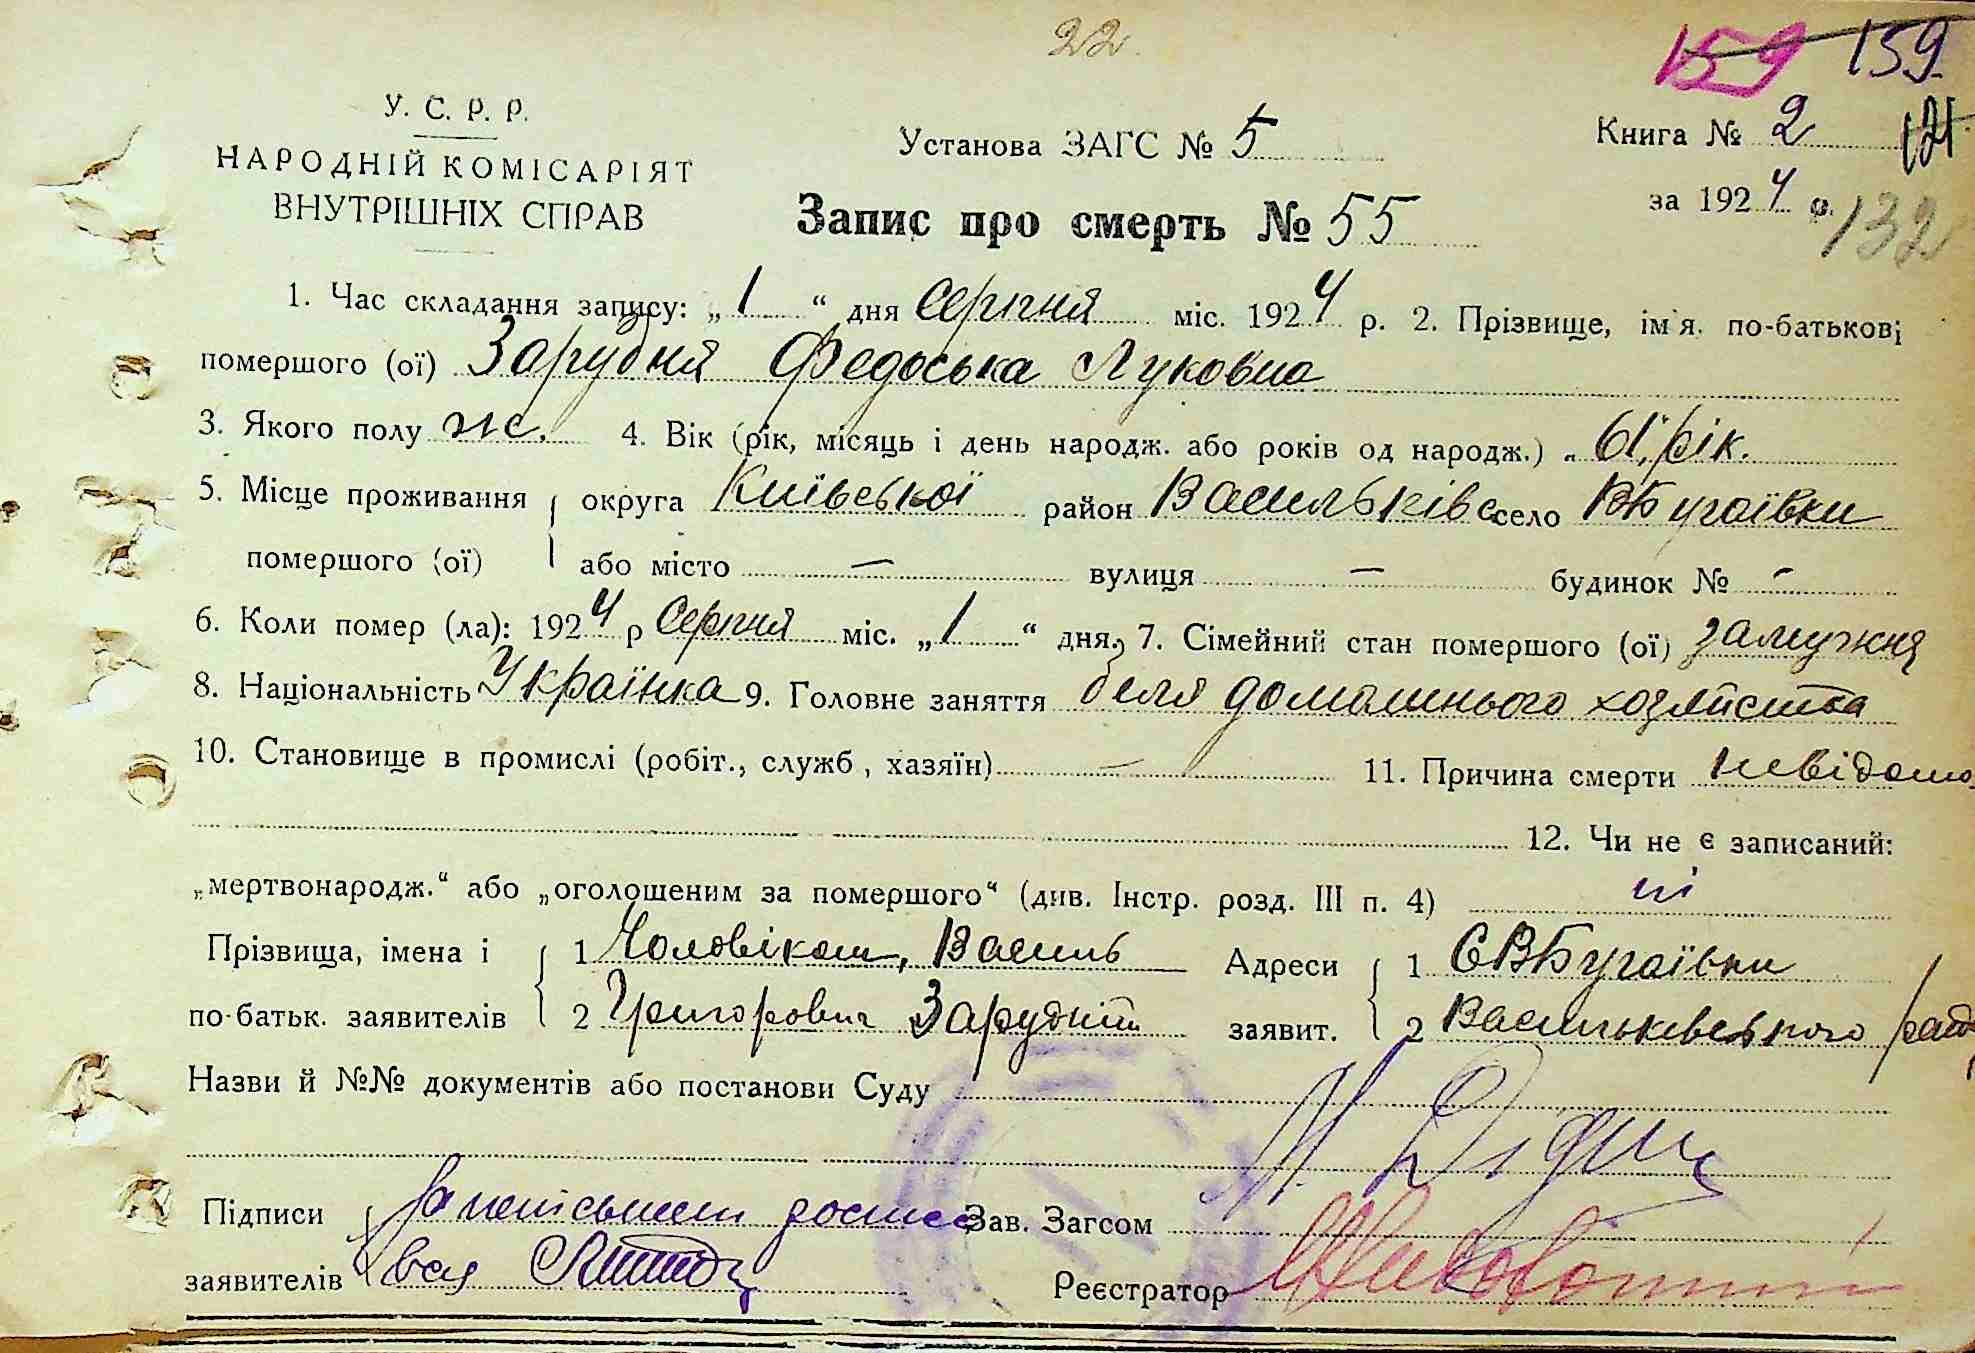 22
159 159
У. С. Р. Р.
НАРОДНІЙ КОМІСАРІЯТ
ВНУТРІШНІХ СПРАВ
Установа ЗАГС № 5
Книга № 2
за 1924 р. 132
Запис про смерть № 55
1. Час складання запису: „1“ дня серпня міс. 1924 р. 2. Прізвище, ім'я, по-батькові
помершого (ої) Зарудня Федоська Луковна
3. Якого полу ж. 4. Вік (рік, місяць і день народж. або років од народж.) 61 рік.
5. Місце проживання округа Київської район Васильківс село ВБугаївки
помершого (ої) або місто — вулиця — будинок № -
6. Коли помер (ла): 1924 р серпня міс. „1“ дня. 7. Сімейний стан помершого (ої) замужня
8. Національність Українка 9. Головне заняття біля домашнього хозяйства
10. Становище в промислі (робіт., служб, хазяїн) — 11. Причина смерти невідома
12. Чи не є записаний:
„мертвонародж.“ або „оголошеним за помершого“ (див. Інстр. розд. III п. 4) ні
Прізвища, імена і 1 Чоловіком, Василь Адреси 1 СВБугаївки
по-батьк. заявителів 2 Григорович Зарудній заявит. 2 Васильківського рай
Назви й №№ документів або постанови Суду
Підписи Зав. Загсом
заявителів Реєстратор